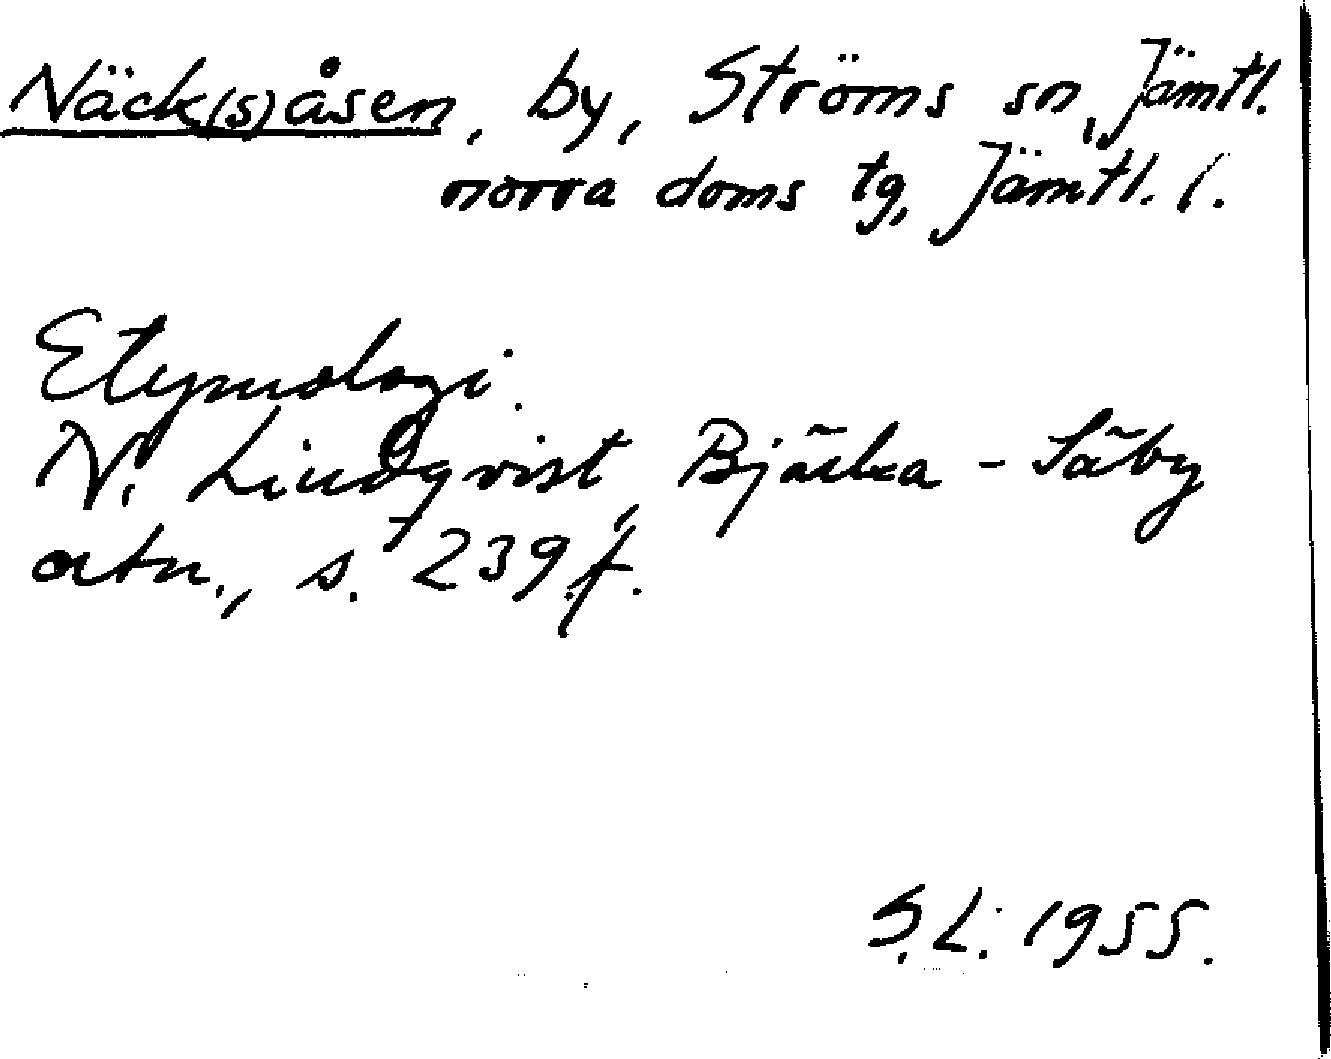 Näck(s)åsen, by, Ströms sn, Jämtl.
norra doms tg, Jämtl. l.
Etymologi.
N. Lindqvist, Bjärka-Säby
ortn., s. 239 f.
S. L. 1955.